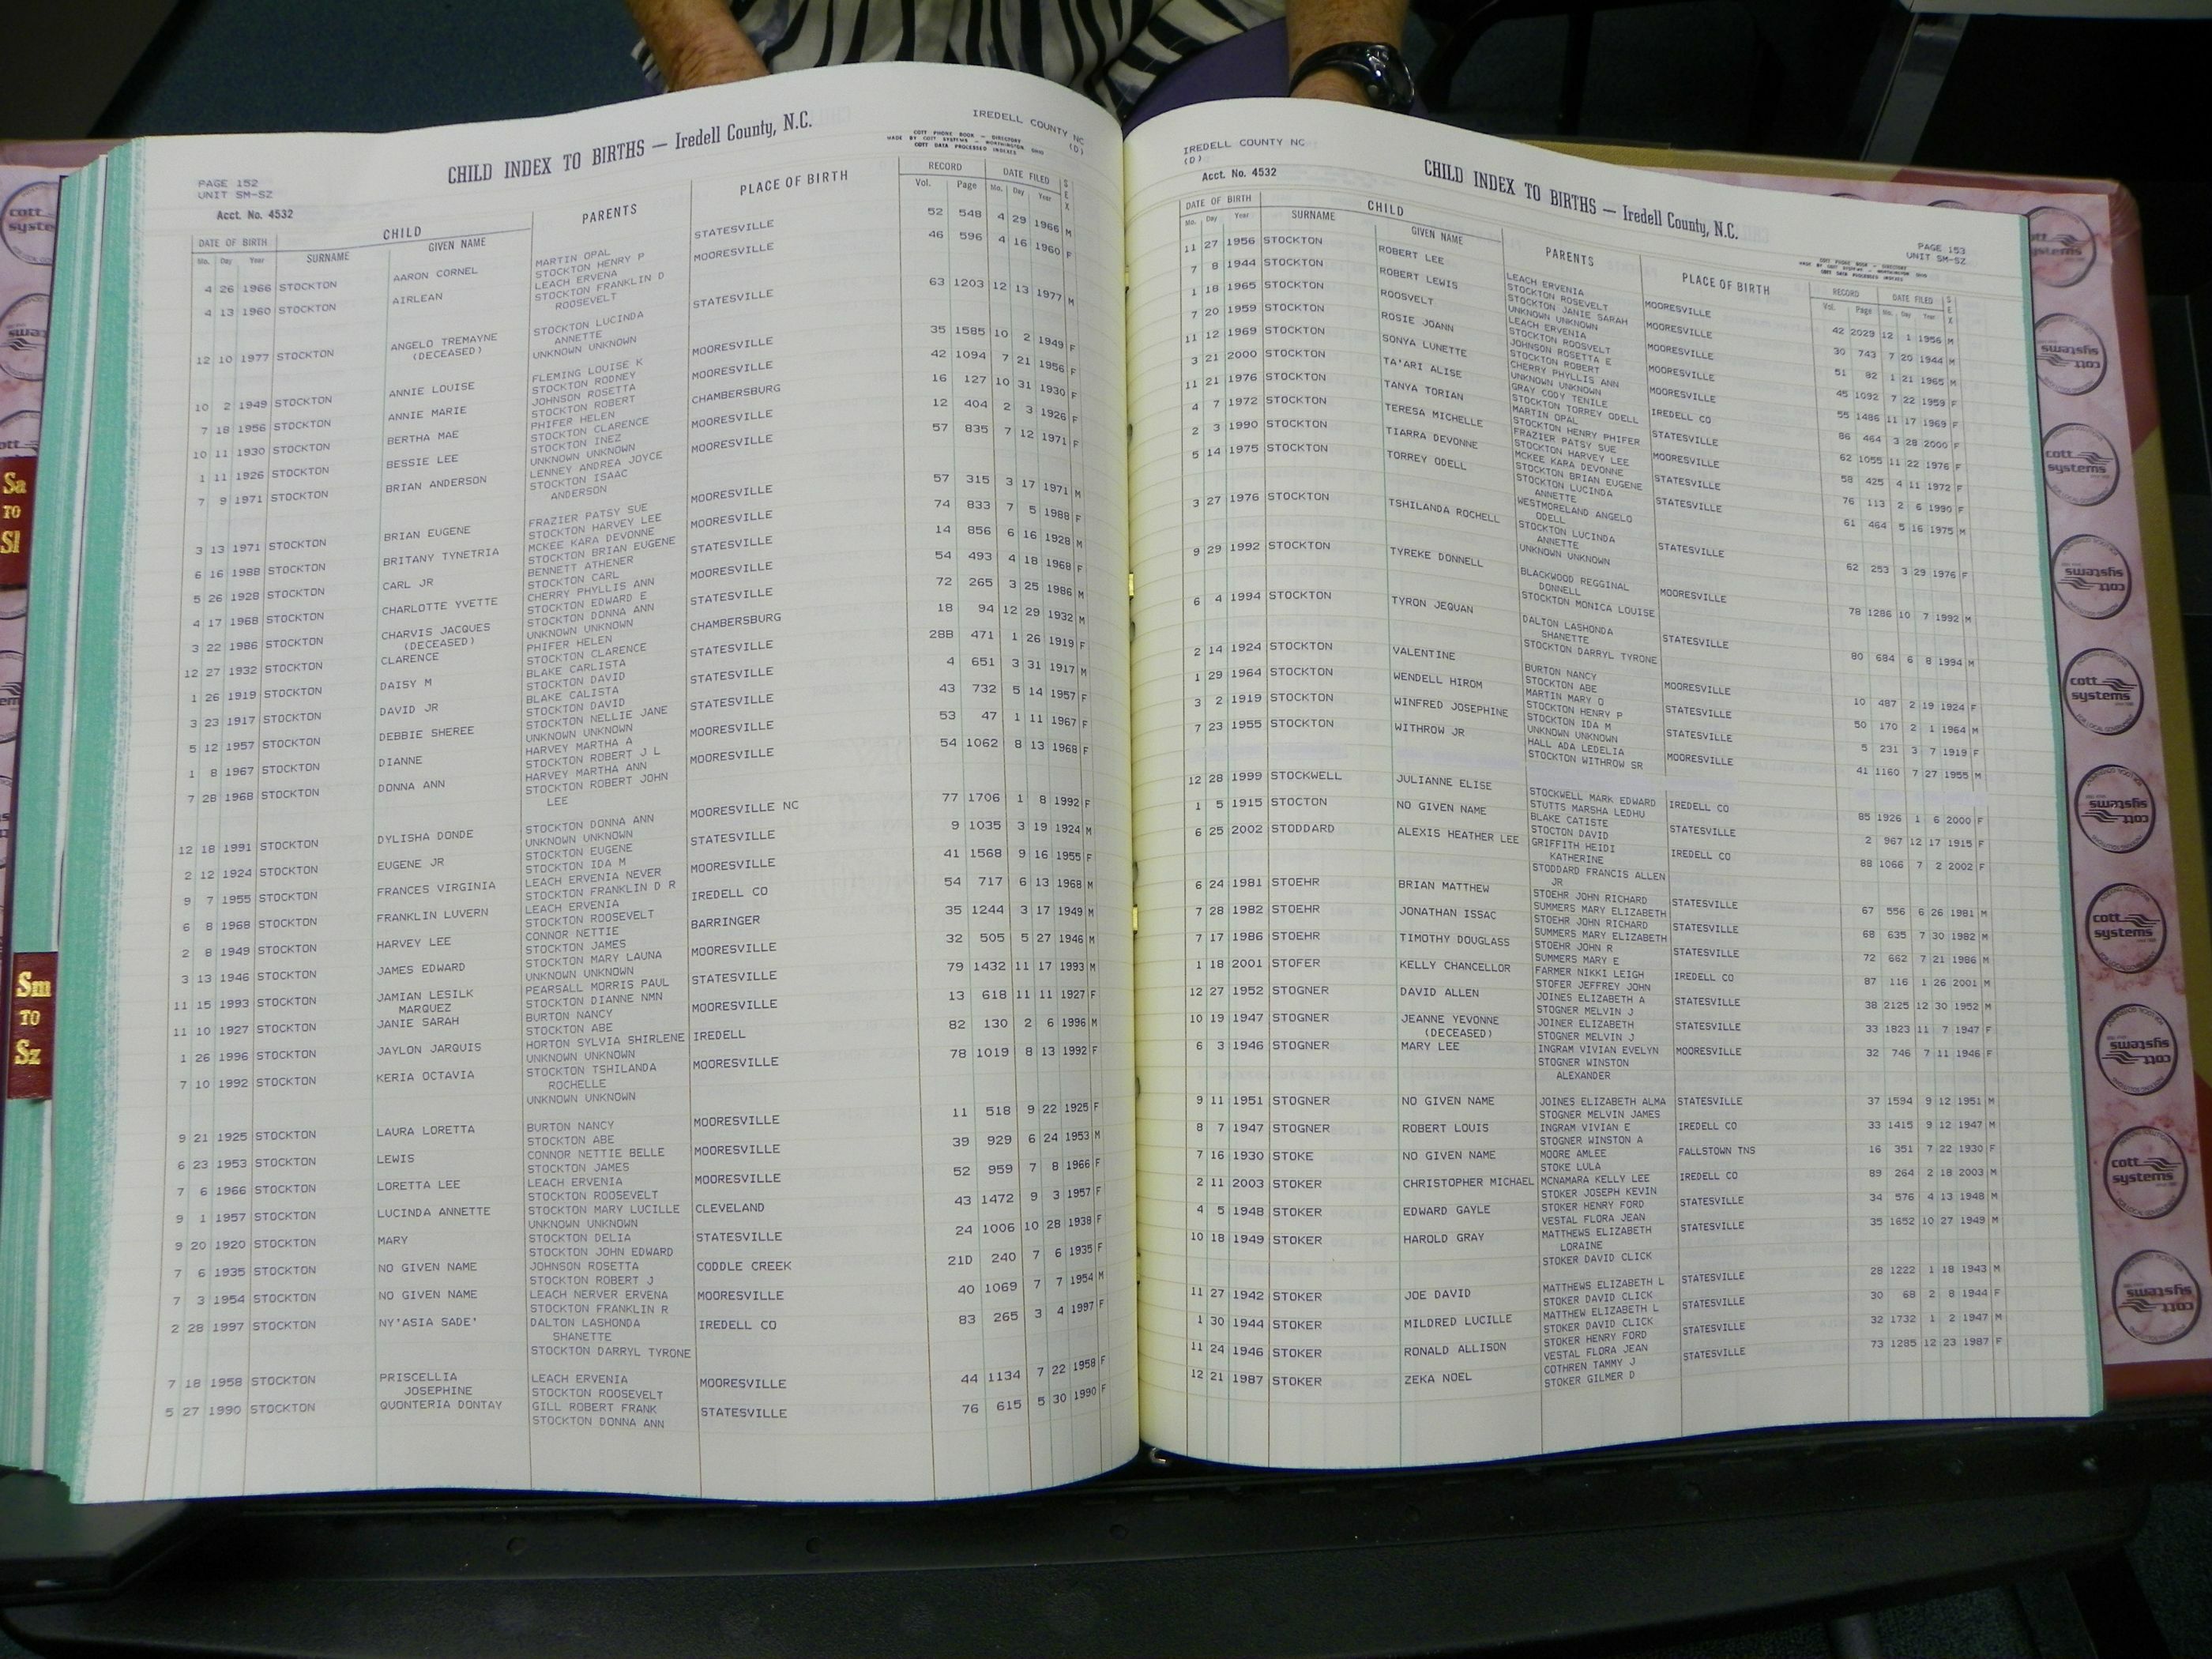 PAGE 152
UNIT SM-SZ
Acct. No. 4532
CHILD INDEX TO BIRTHS — Iredell County, N.C.
IREDELL COUNTY NC
(D)
COTT PHONE BOOK - DIRECTORY
MADE BY COTT SYSTEMS - WORTHINGTON, OHIO
COTT DATA PROCESSED INDEXES
DATE OF BIRTH CHILD PARENTS PLACE OF BIRTH RECORD DATE FILED SEX
Mo. Day Year SURNAME GIVEN NAME Vol. Page Mo. Day Year
4 26 1966 STOCKTON AARON CORNEL MARTIN OPAL STATESVILLE 52 548 4 29 1966 M
STOCKTON HENRY P
4 13 1960 STOCKTON AIRLEAN LEACH ERVENA MOORESVILLE 46 596 4 16 1960 F
STOCKTON FRANKLIN D
ROOSEVELT
12 10 1977 STOCKTON ANGELO TREMAYNE STOCKTON LUCINDA STATESVILLE 63 1203 12 13 1977 M
(DECEASED) ANNETTE
UNKNOWN UNKNOWN
10 2 1949 STOCKTON ANNIE LOUISE FLEMING LOUISE K MOORESVILLE 35 1585 10 2 1949 F
STOCKTON RODNEY
7 18 1956 STOCKTON ANNIE MARIE JOHNSON ROSETTA MOORESVILLE 42 1094 7 21 1956 F
STOCKTON ROBERT
10 11 1930 STOCKTON BERTHA MAE PHIFER HELEN CHAMBERSBURG 16 127 10 31 1930 F
STOCKTON CLARENCE
1 11 1926 STOCKTON BESSIE LEE STOCKTON INEZ MOORESVILLE 12 404 2 3 1926 F
UNKNOWN UNKNOWN
7 9 1971 STOCKTON BRIAN ANDERSON LENNEY ANDREA JOYCE MOORESVILLE 57 835 7 12 1971 F
STOCKTON ISAAC
ANDERSON
3 13 1971 STOCKTON BRIAN EUGENE FRAZIER PATSY SUE MOORESVILLE 57 315 3 17 1971 M
STOCKTON HARVEY LEE
6 16 1988 STOCKTON BRITANY TYNETRIA MCKEE KARA DEVONNE MOORESVILLE 74 833 7 5 1988 F
STOCKTON BRIAN EUGENE
5 26 1928 STOCKTON CARL JR BENNETT ATHENER STATESVILLE 14 856 6 16 1928 M
STOCKTON CARL
4 17 1968 STOCKTON CHARLOTTE YVETTE CHERRY PHYLLIS ANN MOORESVILLE 54 493 4 18 1968 F
STOCKTON EDWARD E
3 22 1986 STOCKTON CHARVIS JACQUES STOCKTON DONNA ANN STATESVILLE 72 265 3 25 1986 M
(DECEASED) UNKNOWN UNKNOWN
12 27 1932 STOCKTON CLARENCE PHIFER HELEN CHAMBERSBURG 18 94 12 29 1932 M
STOCKTON CLARENCE
1 26 1919 STOCKTON DAISY M BLAKE CARLISTA STATESVILLE 28B 471 1 26 1919 F
STOCKTON DAVID
3 23 1917 STOCKTON DAVID JR BLAKE CALISTA STATESVILLE 4 651 3 31 1917 M
STOCKTON DAVID
5 12 1957 STOCKTON DEBBIE SHEREE STOCKTON NELLIE JANE STATESVILLE 43 732 5 14 1957 F
UNKNOWN UNKNOWN
1 8 1967 STOCKTON DIANNE HARVEY MARTHA A MOORESVILLE 53 47 1 11 1967 F
STOCKTON ROBERT J L
7 28 1968 STOCKTON DONNA ANN HARVEY MARTHA ANN MOORESVILLE 54 1062 8 13 1968 F
STOCKTON ROBERT JOHN
LEE
12 18 1991 STOCKTON DYLISHA DONDE STOCKTON DONNA ANN MOORESVILLE NC 77 1706 1 8 1992 F
UNKNOWN UNKNOWN
2 12 1924 STOCKTON EUGENE JR STOCKTON EUGENE STATESVILLE 9 1035 3 19 1924 M
STOCKTON IDA M
9 7 1955 STOCKTON FRANCES VIRGINIA LEACH ERVENIA NEVER MOORESVILLE 41 1568 9 16 1955 F
STOCKTON FRANKLIN D R
6 8 1968 STOCKTON FRANKLIN LUVERN LEACH ERVENIA IREDELL CO 54 717 6 13 1968 M
STOCKTON ROOSEVELT
2 8 1949 STOCKTON HARVEY LEE CONNOR NETTIE BARRINGER 35 1244 3 17 1949 M
STOCKTON JAMES
3 13 1946 STOCKTON JAMES EDWARD STOCKTON MARY LAUNA MOORESVILLE 32 505 5 27 1946 M
UNKNOWN UNKNOWN
11 15 1993 STOCKTON JAMIAN LESILK PEARSALL MORRIS PAUL STATESVILLE 79 1432 11 17 1993 M
MARQUEZ STOCKTON DIANNE NMN
11 10 1927 STOCKTON JANIE SARAH BURTON NANCY MOORESVILLE 13 618 11 11 1927 F
STOCKTON ABE
1 26 1996 STOCKTON JAYLON JARQUIS HORTON SYLVIA SHIRLENE IREDELL 82 130 2 6 1996 M
UNKNOWN UNKNOWN
7 10 1992 STOCKTON KERIA OCTAVIA STOCKTON TSHILANDA MOORESVILLE 78 1019 8 13 1992 F
ROCHELLE
UNKNOWN UNKNOWN
9 21 1925 STOCKTON LAURA LORETTA BURTON NANCY MOORESVILLE 11 518 9 22 1925 F
STOCKTON ABE
6 23 1953 STOCKTON LEWIS CONNOR NETTIE BELLE MOORESVILLE 39 929 6 24 1953 M
STOCKTON JAMES
7 6 1966 STOCKTON LORETTA LEE LEACH ERVENIA MOORESVILLE 52 959 7 8 1966 F
STOCKTON ROOSEVELT
9 1 1957 STOCKTON LUCINDA ANNETTE STOCKTON MARY LUCILLE CLEVELAND 43 1472 9 3 1957 F
UNKNOWN UNKNOWN
9 20 1920 STOCKTON MARY STOCKTON DELIA STATESVILLE 24 1006 10 28 1938 F
STOCKTON JOHN EDWARD
7 6 1935 STOCKTON NO GIVEN NAME JOHNSON ROSETTA CODDLE CREEK 21D 240 7 6 1935 F
STOCKTON ROBERT J
7 3 1954 STOCKTON NO GIVEN NAME LEACH NERVER ERVENA MOORESVILLE 40 1069 7 7 1954 M
STOCKTON FRANKLIN R
2 28 1997 STOCKTON NY'ASIA SADE' DALTON LASHONDA IREDELL CO 83 265 3 4 1997 F
SHANETTE
STOCKTON DARRYL TYRONE
7 18 1958 STOCKTON PRISCELLIA LEACH ERVENIA MOORESVILLE 44 1134 7 22 1958 F
JOSEPHINE STOCKTON ROOSEVELT
5 27 1990 STOCKTON QUONTERIA DONTAY GILL ROBERT FRANK STATESVILLE 76 615 5 30 1990 F
STOCKTON DONNA ANN
IREDELL COUNTY NC
(D)
Acct. No. 4532
CHILD INDEX TO BIRTHS — Iredell County, N.C.
PAGE 153
UNIT SM-SZ
COTT PHONE BOOK - DIRECTORY
MADE BY COTT SYSTEMS - WORTHINGTON, OHIO
COTT DATA PROCESSED INDEXES
DATE OF BIRTH CHILD PARENTS PLACE OF BIRTH RECORD DATE FILED SEX
Mo. Day Year SURNAME GIVEN NAME Vol. Page Mo. Day Year
11 27 1956 STOCKTON ROBERT LEE LEACH ERVENIA MOORESVILLE 42 2029 12 1 1956 M
STOCKTON ROSEVELT
7 8 1944 STOCKTON ROBERT LEWIS STOCKTON JANIE SARAH MOORESVILLE 30 743 7 20 1944 M
UNKNOWN UNKNOWN
1 18 1965 STOCKTON ROOSVELT LEACH ERVENIA MOORESVILLE 51 82 1 21 1965 M
STOCKTON ROOSVELT
7 20 1959 STOCKTON ROSIE JOANN JOHNSON ROSETTA E MOORESVILLE 45 1092 7 22 1959 F
STOCKTON ROBERT
11 12 1969 STOCKTON SONYA LUNETTE CHERRY PHYLLIS ANN MOORESVILLE 55 1486 11 17 1969 F
UNKNOWN UNKNOWN
3 21 2000 STOCKTON TA'ARI ALISE GRAY CODY TENILE IREDELL CO 86 464 3 28 2000 F
STOCKTON TORREY ODELL
11 21 1976 STOCKTON TANYA TORIAN MARTIN OPAL STATESVILLE 62 1055 11 22 1976 F
STOCKTON HENRY PHIFER
4 7 1972 STOCKTON TERESA MICHELLE FRAZIER PATSY SUE MOORESVILLE 58 425 4 11 1972 F
STOCKTON HARVEY LEE
2 3 1990 STOCKTON TIARRA DEVONNE MCKEE KARA DEVONNE STATESVILLE 76 113 2 6 1990 F
STOCKTON BRIAN EUGENE
5 14 1975 STOCKTON TORREY ODELL STOCKTON LUCINDA STATESVILLE 61 464 5 16 1975 M
ANNETTE
WESTMORELAND ANGELO
ODELL
3 27 1976 STOCKTON TSHILANDA ROCHELL STOCKTON LUCINDA STATESVILLE 62 253 3 29 1976 F
ANNETTE
UNKNOWN UNKNOWN
9 29 1992 STOCKTON TYREKE DONNELL BLACKWOOD REGGINAL MOORESVILLE 78 1286 10 7 1992 M
DONNELL
STOCKTON MONICA LOUISE
6 4 1994 STOCKTON TYRON JEQUAN DALTON LASHONDA STATESVILLE 80 684 6 8 1994 M
SHANETTE
STOCKTON DARRYL TYRONE
2 14 1924 STOCKTON VALENTINE BURTON NANCY MOORESVILLE 10 487 2 19 1924 F
STOCKTON ABE
1 29 1964 STOCKTON WENDELL HIROM MARTIN MARY O STATESVILLE 50 170 2 1 1964 M
STOCKTON HENRY P
3 2 1919 STOCKTON WINFRED JOSEPHINE STOCKTON IDA M STATESVILLE 5 231 3 7 1919 F
UNKNOWN UNKNOWN
7 23 1955 STOCKTON WITHROW JR HALL ADA LEDELIA MOORESVILLE 41 1160 7 27 1955 M
STOCKTON WITHROW SR
12 28 1999 STOCKWELL JULIANNE ELISE STOCKWELL MARK EDWARD IREDELL CO 85 1926 1 6 2000 F
STUTTS MARSHA LEDHU
1 5 1915 STOCTON NO GIVEN NAME BLAKE CATISTE STATESVILLE 2 967 12 17 1915 F
STOCTON DAVID
6 25 2002 STODDARD ALEXIS HEATHER LEE GRIFFITH HEIDI IREDELL CO 88 1066 7 2 2002 F
KATHERINE
STODDARD FRANCIS ALLEN
JR
6 24 1981 STOEHR BRIAN MATTHEW STOEHR JOHN RICHARD STATESVILLE 67 556 6 26 1981 M
SUMMERS MARY ELIZABETH
7 28 1982 STOEHR JONATHAN ISSAC STOEHR JOHN RICHARD STATESVILLE 68 635 7 30 1982 M
SUMMERS MARY ELIZABETH
7 17 1986 STOEHR TIMOTHY DOUGLASS STOEHR JOHN R STATESVILLE 72 662 7 21 1986 M
SUMMERS MARY E
1 18 2001 STOFER KELLY CHANCELLOR FARMER NIKKI LEIGH IREDELL CO 87 116 1 26 2001 M
STOFER JEFFREY JOHN
12 27 1952 STOGNER DAVID ALLEN JOINES ELIZABETH A STATESVILLE 38 2125 12 30 1952 M
STOGNER MELVIN J
10 19 1947 STOGNER JEANNE YEVONNE JOINER ELIZABETH STATESVILLE 33 1823 11 7 1947 F
(DECEASED) STOGNER MELVIN J
6 3 1946 STOGNER MARY LEE INGRAM VIVIAN EVELYN MOORESVILLE 32 746 7 11 1946 F
STOGNER WINSTON
ALEXANDER
9 11 1951 STOGNER NO GIVEN NAME JOINES ELIZABETH ALMA STATESVILLE 37 1594 9 12 1951 M
STOGNER MELVIN JAMES
8 7 1947 STOGNER ROBERT LOUIS INGRAM VIVIAN E IREDELL CO 33 1415 9 12 1947 M
STOGNER WINSTON A
7 16 1930 STOKE NO GIVEN NAME MOORE AMLEE FALLSTOWN TNS 16 351 7 22 1930 F
STOKE LULA
2 11 2003 STOKER CHRISTOPHER MICHAEL MCNAMARA KELLY LEE IREDELL CO 89 264 2 18 2003 M
STOKER JOSEPH KEVIN
4 5 1948 STOKER EDWARD GAYLE STOKER HENRY FORD STATESVILLE 34 576 4 13 1948 M
VESTAL FLORA JEAN
10 18 1949 STOKER HAROLD GRAY MATTHEWS ELIZABETH STATESVILLE 35 1652 10 27 1949 M
LORAINE
STOKER DAVID CLICK
11 27 1942 STOKER JOE DAVID MATTHEWS ELIZABETH L STATESVILLE 28 1222 1 18 1943 M
STOKER DAVID CLICK
1 30 1944 STOKER MILDRED LUCILLE MATTHEW ELIZABETH L STATESVILLE 30 68 2 8 1944 F
STOKER DAVID CLICK
11 24 1946 STOKER RONALD ALLISON STOKER HENRY FORD STATESVILLE 32 1732 1 2 1947 M
VESTAL FLORA JEAN
12 21 1987 STOKER ZEKA NOEL COTHREN TAMMY J STATESVILLE 73 1285 12 23 1987 F
STOKER GILMER D
Sa
TO
Sl
Sm
TO
Sz
cott
systems